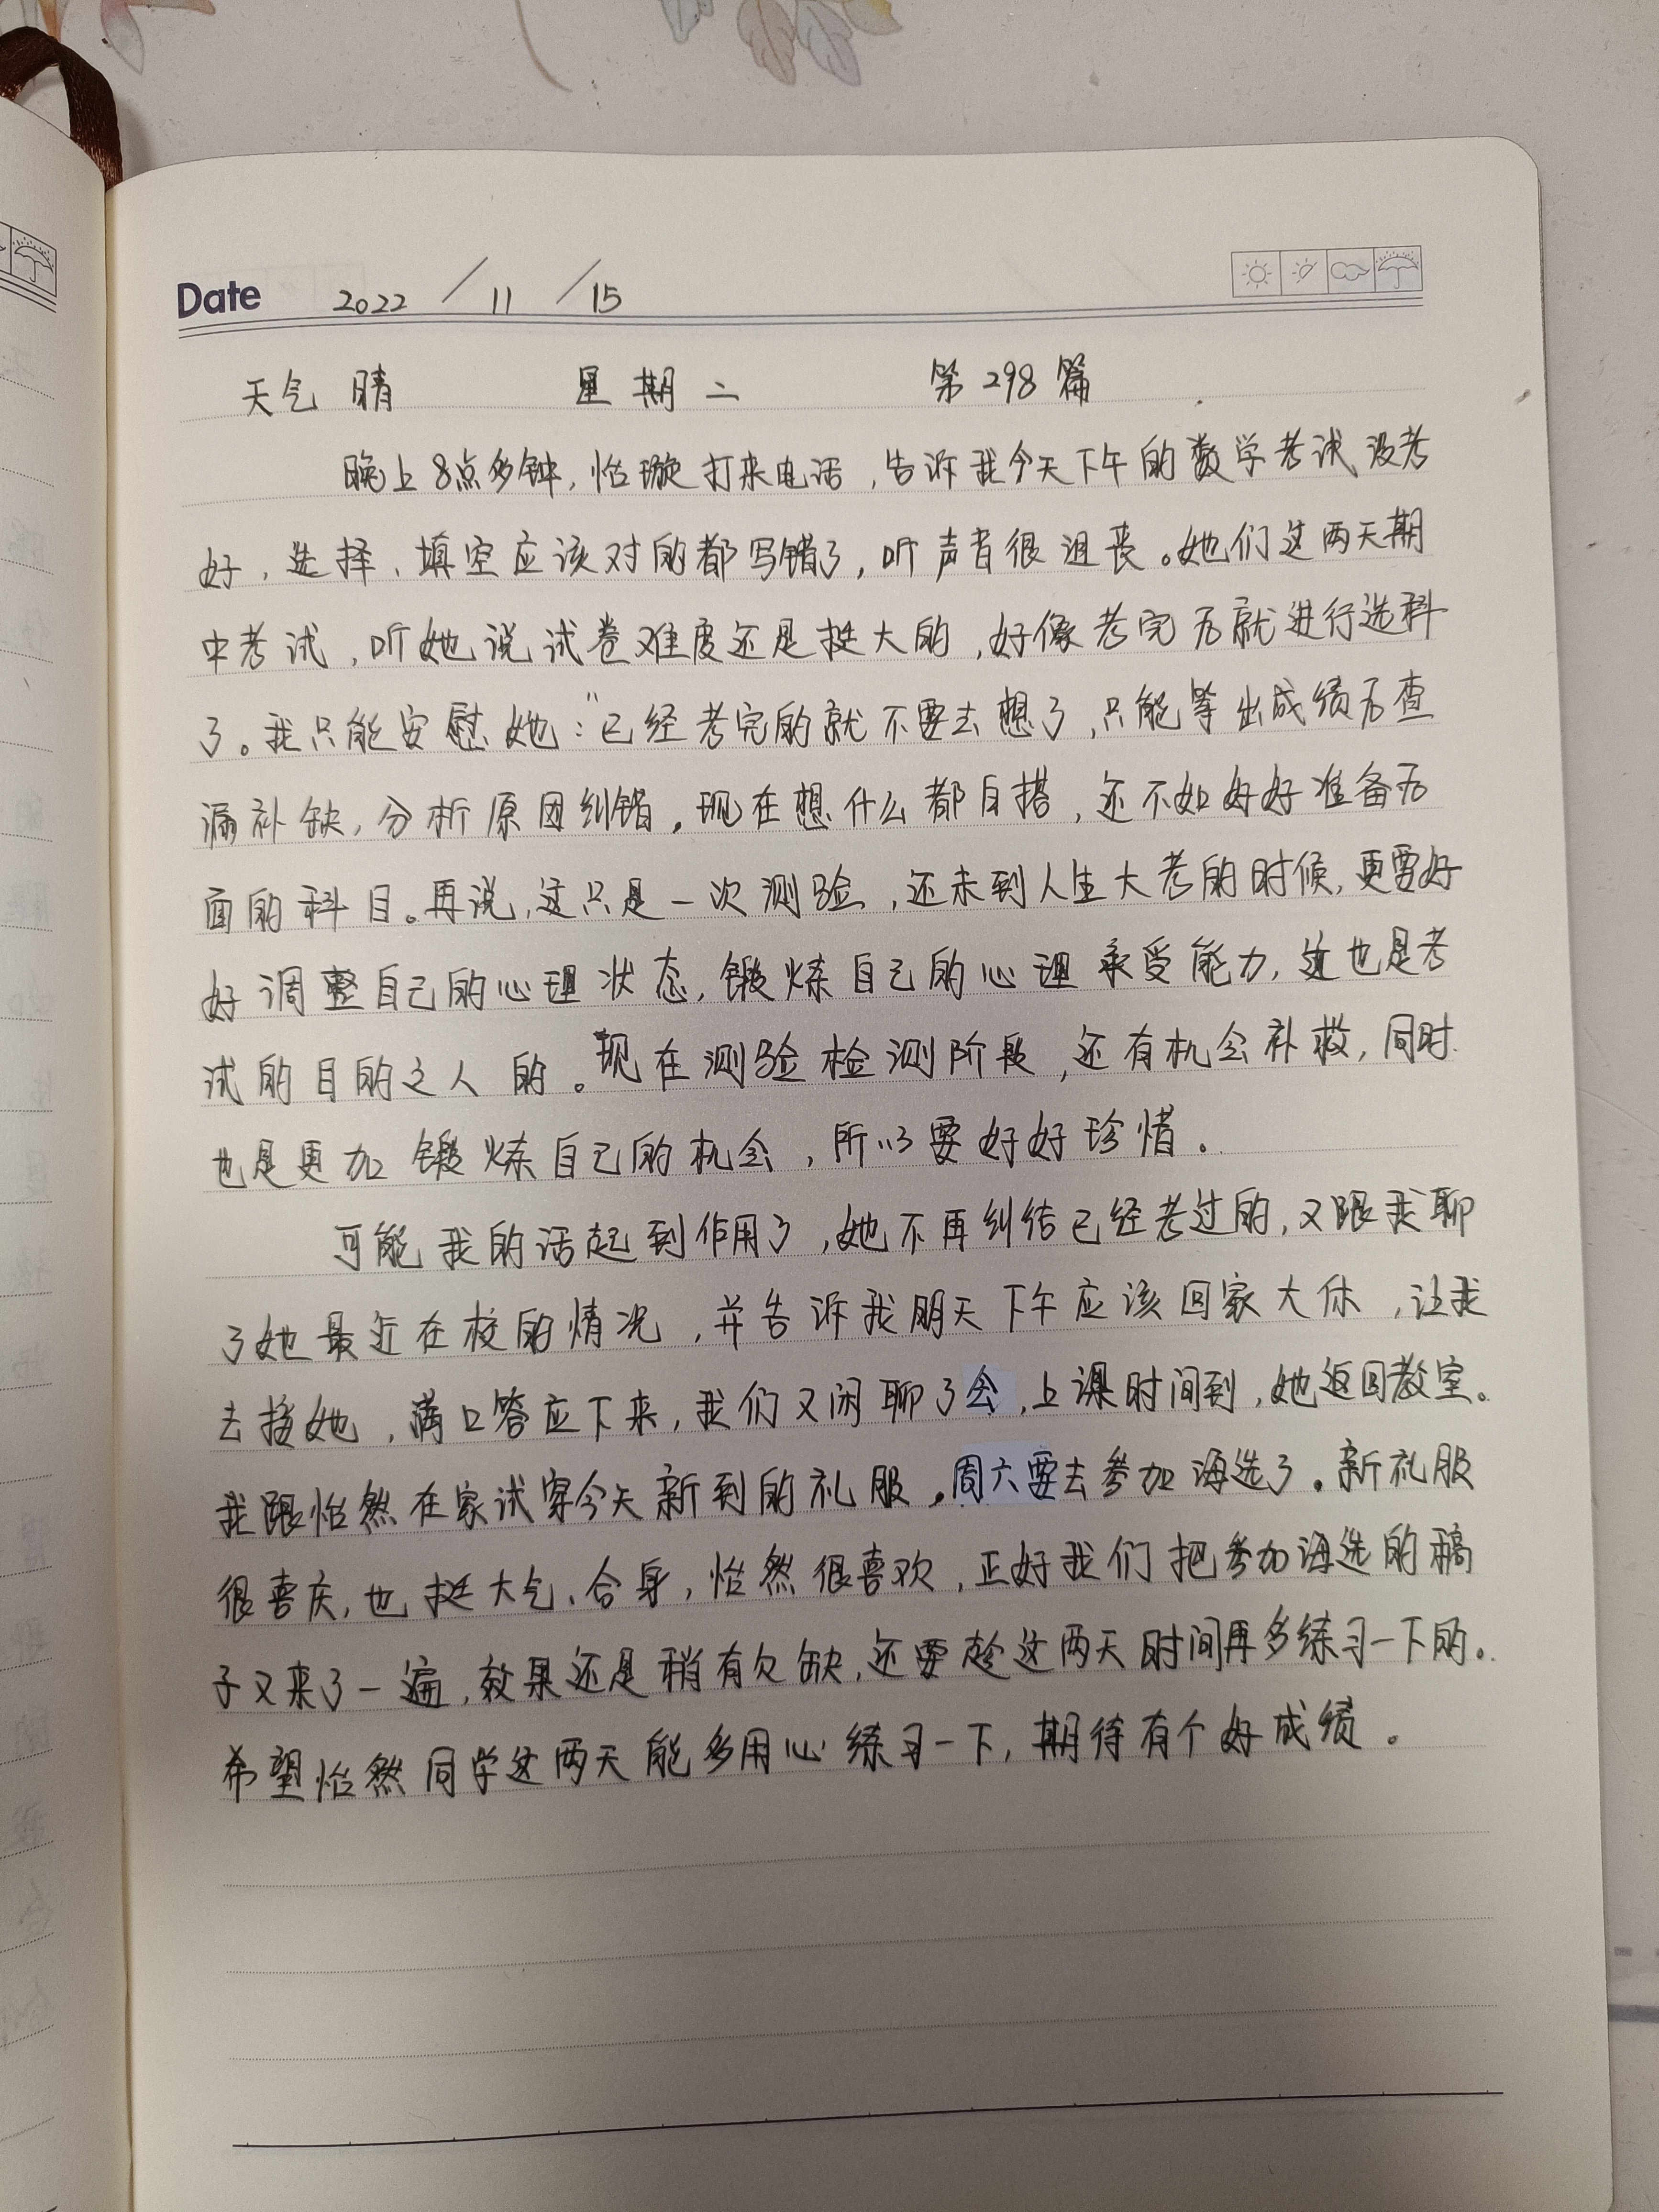 Date 2022 / 11 / 15
天气 晴 星期二 第298篇
晚上8点多钟,怡璇打来电话,告诉我今天下午的数学考试没考
好,选择、填空应该对的都写错了,听声音很沮丧。她们这两天期
中考试,听她说试卷难度还是挺大的,好像考完后就进行选科
了。我只能安慰她:“已经考完的就不要去想了,只能等出成绩后查
漏补缺,分析原因纠错,现在想什么都白搭,还不如好好准备后
面的科目。再说,这只是一次测验,还未到人生大考的时候,更要好
好调整自己的心理状态,锻炼自己的心理承受能力,这也是考
试的目的之人的。现在测验检测阶段,还有机会补救,同时
也是更加锻炼自己的机会,所以要好好珍惜。
可能我的话起到作用了,她不再纠结已经考过的,又跟我聊
了她最近在校的情况,并告诉我明天下午应该回家大休,让我
去接她,满口答应下来,我们又闲聊了会,上课时间到,她返回教室。
我跟怡然在家试穿今天新到的礼服,周六要去参加海选了。新礼服
很喜庆,也挺大气、合身,怡然很喜欢,正好我们把参加海选的稿
子又来了一遍,效果还是稍有欠缺,还要趁这两天时间再多练习一下的。
希望怡然同学这两天能多用心练习一下,期待有个好成绩。